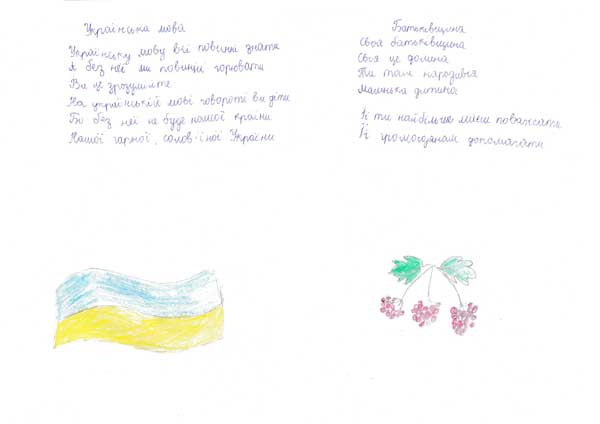 Українська мова
Українську мову всі повинні знати
А без неї ми повинні горювати
Ви це зрозумієте
На українській мові говоріть ви діти
Бо без неї не буде нашої країни
Нашої гарної, солов'їної України
Батьківщина
Своя батьківщина
Своя це долина
Ти там народився
Маленька дитина
Її ти найбільше маєш поважати
Її громадянам допомагати